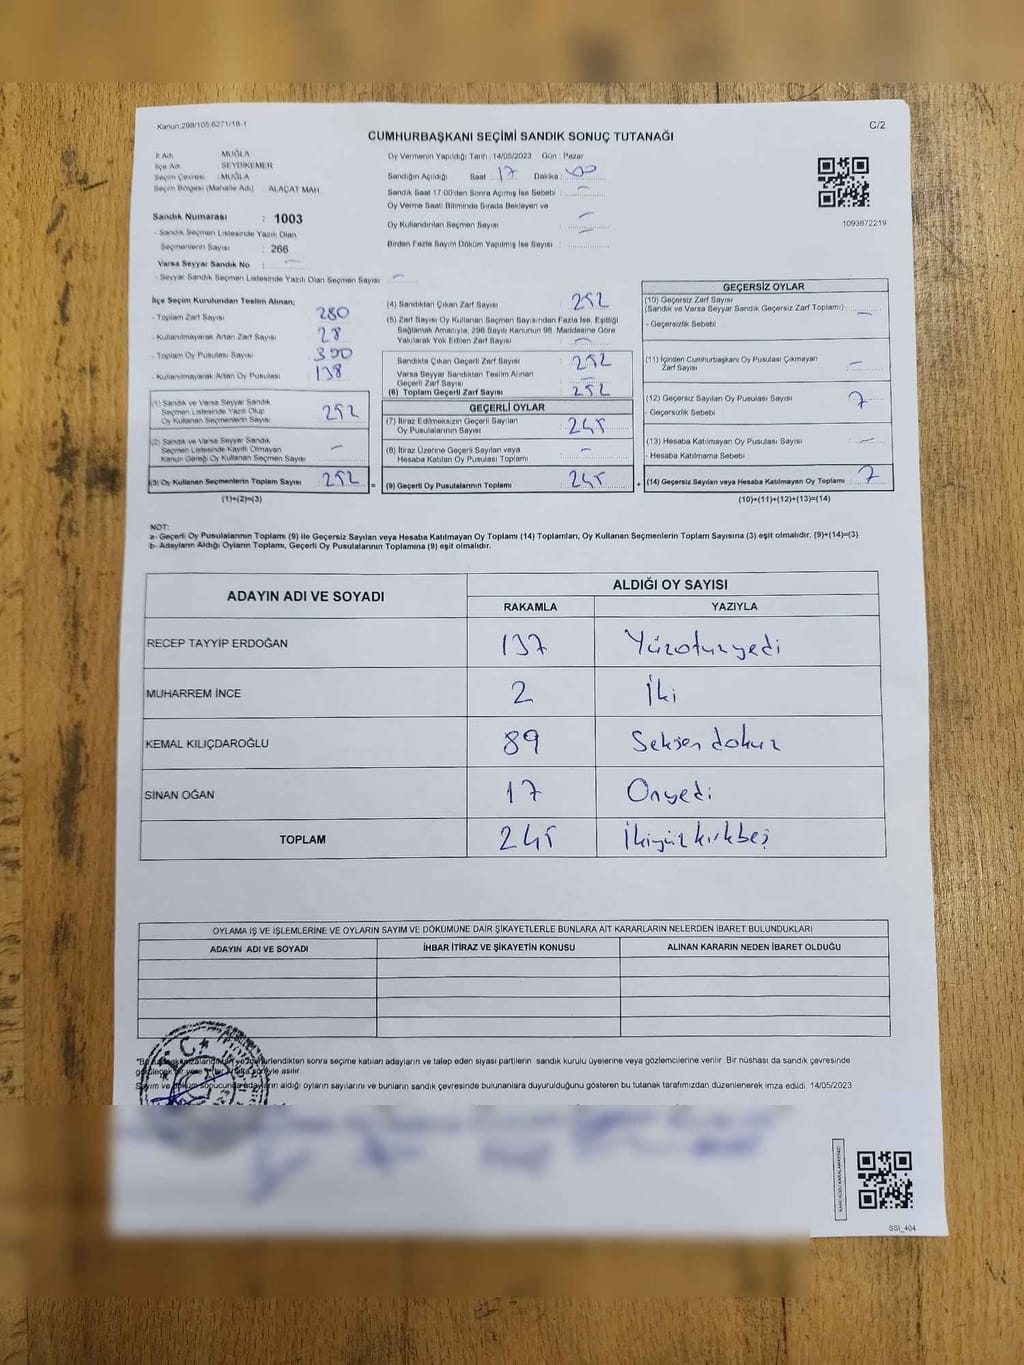 Kanun:298/105,6271/18-1
C/2
CUMHURBAŞKANI SEÇİMİ SANDIK SONUÇ TUTANAĞI
İl Adı : MUĞLA
İlçe Adı : SEYDİKEMER
Seçim Çevresi : MUĞLA
Seçim Bölgesi (Mahalle Adı) : ALAÇAT MAH
Sandık Numarası : 1003
- Sandık Seçmen Listesinde Yazılı Olan
Seçmenlerin Sayısı : 266
Varsa Seyyar Sandık No : —
- Seyyar Sandık Seçmen Listesinde Yazılı Olan Seçmen Sayısı : —
Oy Vermenin Yapıldığı Tarih :14/05/2023 Gün : Pazar
Sandığın Açıldığı Saat : 17 Dakika : 00
Sandık Saat 17:00'den Sonra Açılmış İse Sebebi : —
Oy Verme Saati Bitiminde Sırada Bekleyen ve
Oy Kullandırılan Seçmen Sayısı : —
Birden Fazla Sayım Döküm Yapılmış İse Sayısı : —
1093872219
İlçe Seçim Kurulundan Teslim Alınan;
- Toplam Zarf Sayısı : 280
- Kullanılmayarak Artan Zarf Sayısı : 28
- Toplam Oy Pusulası Sayısı : 390
- Kullanılmayarak Artan Oy Pusulası : 138
(1) Sandık ve Varsa Seyyar Sandık
Seçmen Listesinde Yazılı Olup
Oy Kullanan Seçmenlerin Sayısı : 252
(2) Sandık ve Varsa Seyyar Sandık
Seçmen Listesinde Kayıtlı Olmayan
Kanun Gereği Oy Kullanan Seçmen Sayısı : —
(3) Oy Kullanan Seçmenlerin Toplam Sayısı : 252
(1)+(2)=(3)
(4) Sandıktan Çıkan Zarf Sayısı : 252
(5) Zarf Sayısı Oy Kullanan Seçmen Sayısından Fazla İse, Eşitliği
Sağlamak Amacıyla, 298 Sayılı Kanunun 98. Maddesine Göre
Yakılarak Yok Edilen Zarf Sayısı : —
Sandıkta Çıkan Geçerli Zarf Sayısı : 252
Varsa Seyyar Sandıktan Teslim Alınan
Geçerli Zarf Sayısı : —
(6) Toplam Geçerli Zarf Sayısı : 252
GEÇERLİ OYLAR
(7) İtiraz Edilmeksizin Geçerli Sayılan
Oy Pusulalarının Sayısı : 245
(8) İtiraz Üzerine Geçerli Sayılan veya
Hesaba Katılan Oy Pusulası Toplamı : —
= (9) Geçerli Oy Pusulalarının Toplamı : 245
GEÇERSİZ OYLAR
(10) Geçersiz Zarf Sayısı
(Sandık ve Varsa Seyyar Sandık Geçersiz Zarf Toplamı) : —
- Geçersizlik Sebebi :
(11) İçinden Cumhurbaşkanı Oy Pusulası Çıkmayan
Zarf Sayısı : —
(12) Geçersiz Sayılan Oy Pusulası Sayısı : 7
- Geçersizlik Sebebi :
(13) Hesaba Katılmayan Oy Pusulası Sayısı : —
- Hesaba Katılmama Sebebi :
+ (14) Geçersiz Sayılan veya Hesaba Katılmayan Oy Toplamı : 7
(10)+(11)+(12)+(13)=(14)
NOT:
a- Geçerli Oy Pusulalarının Toplamı (9) ile Geçersiz Sayılan veya Hesaba Katılmayan Oy Toplamı (14) Toplamları, Oy Kullanan Seçmenlerin Toplam Sayısına (3) eşit olmalıdır. (9)+(14)=(3)
b- Adayların Aldığı Oyların Toplamı, Geçerli Oy Pusulalarının Toplamına (9) eşit olmalıdır.
ADAYIN ADI VE SOYADI
ALDIĞI OY SAYISI
RAKAMLA YAZIYLA
RECEP TAYYİP ERDOĞAN 137 Yüzotuzyedi
MUHARREM İNCE 2 İki
KEMAL KILIÇDAROĞLU 89 Seksendokuz
SİNAN OĞAN 17 Onyedi
TOPLAM 245 İkiyüzkırkbeş
OYLAMA İŞ VE İŞLEMLERİNE VE OYLARIN SAYIM VE DÖKÜMÜNE DAİR ŞİKAYETLERLE BUNLARA AİT KARARLARIN NELERDEN İBARET BULUNDUKLARI
ADAYIN ADI VE SOYADI İHBAR İTİRAZ VE ŞİKAYETİN KONUSU ALINAN KARARIN NEDEN İBARET OLDUĞU
sonra seçime katılan adayların ve talep eden siyasi partilerin sandık kurulu üyelerine veya gözlemcilerine verilir .Bir nüshası da sandık çevresinde
asılır.
aldığı oyların sayılarını ve bunların sandık çevresinde bulunanlara duyurulduğunu gösteren bu tutanak tarafımızdan düzenlenerek imza edildi. 14/05/2023
SSI_404